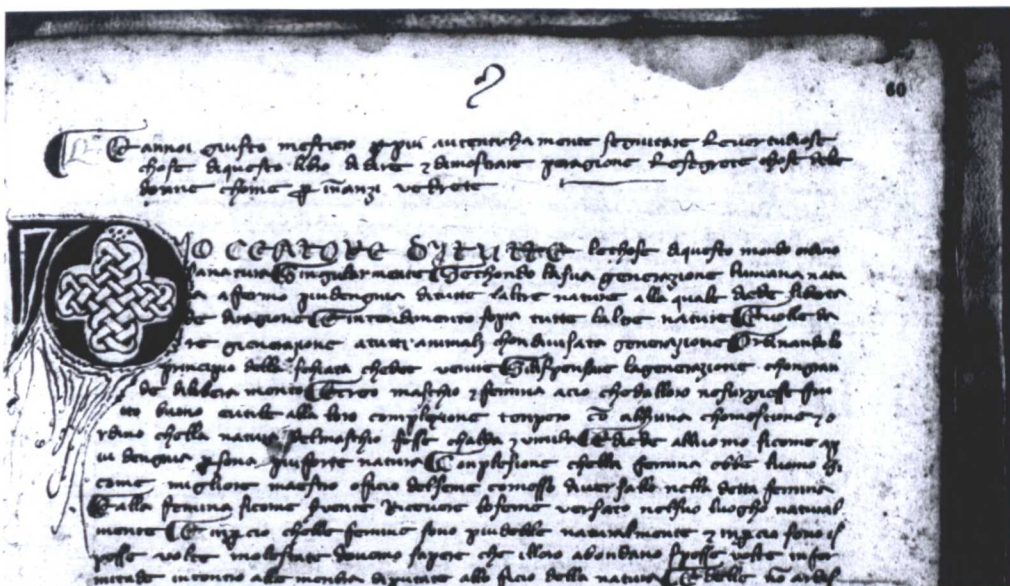 60
E annoi giusto mestiero per piu autenticha mente seguitare le vertudiose
chose di questo libro di dire z dimostrare per agione le segrete chose dele
donne chome per inanzi vedrete
IO CEATORE DI TUTTE le chose di questo mondo
la natura Singularmente Sechondo la sua generazione humana nata
a fermo piu dengnia di tutte l altre nature alla quale diede liberta
de di ragione E intendimento sopra tutte l altre nature E volle da
re gienerazione a tutti animali chon divisata generazione Ordinando lo
principio della che dee venire la generazione chon gran
de dilibera mento E creo maschio z femina acio che dalloro
to buono e utile alla loro complessione tenpero con alchuna chomestione z o
rdino chella natura del maschio fosse chalda z umida E diede all uomo si come a p
iu dengnia persona piu forte natura Conplesione chella femina ebbe l uomo si
come migliore maestro oficio del seme comesso di versallo nella detta femina
E alla femina si come ricevere lo seme versato nel suo luogho natural
mente E inpercio chelle femine sono piu debole naturalmente z inpercio sono i s
pesse volte molestate dovemo sapere che illoro abondano spesse volte infer
mitade intorno alle menbra diputate allo ficio della natura